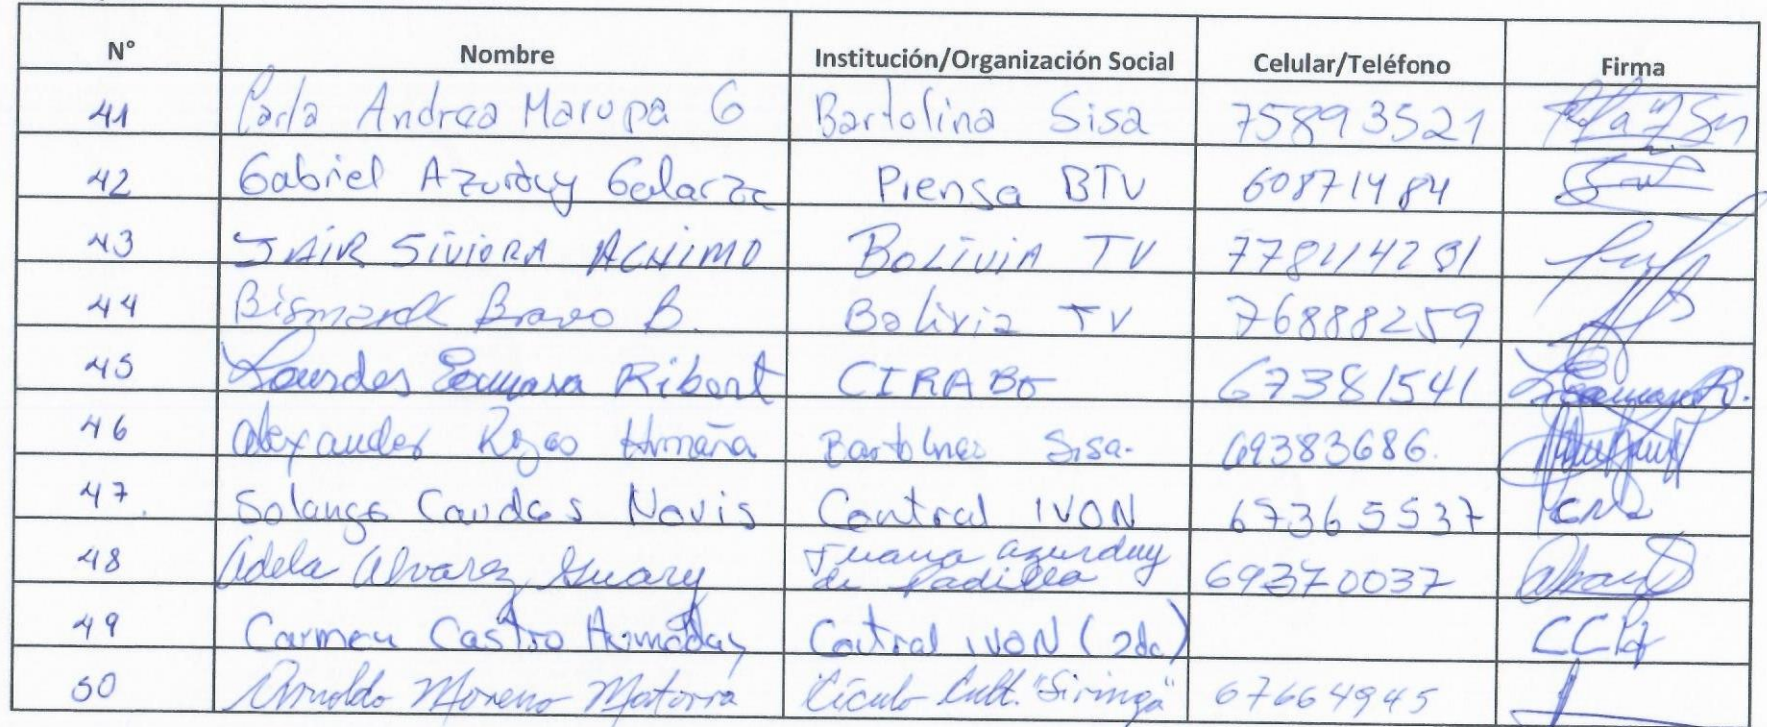 N° Nombre Institución/Organización Social Celular/Teléfono Firma
41 Carla Andrea Maropa G Bartolina Sisa 75893521
42 Gabriel Azurduy Galarza Prensa BTV 60871484
43 JAIR SIVIORA ACHIMO BOLIVIA TV
44 Bismarck Bravo B. Bolivia TV 76888259
45 Lourdes Ribert CIRABO 67381541
46 Alexander Rojas Bartolinas Sisa. 69383686.
47 Solange Navis Central IVON 67365537
48 Adela Alvarez Juana Azurduy
de Padilla 69370037
49 Carmen Castro Central IVON (2da)
50 Arnoldo Moreno Cult. "Siringa" 67664945